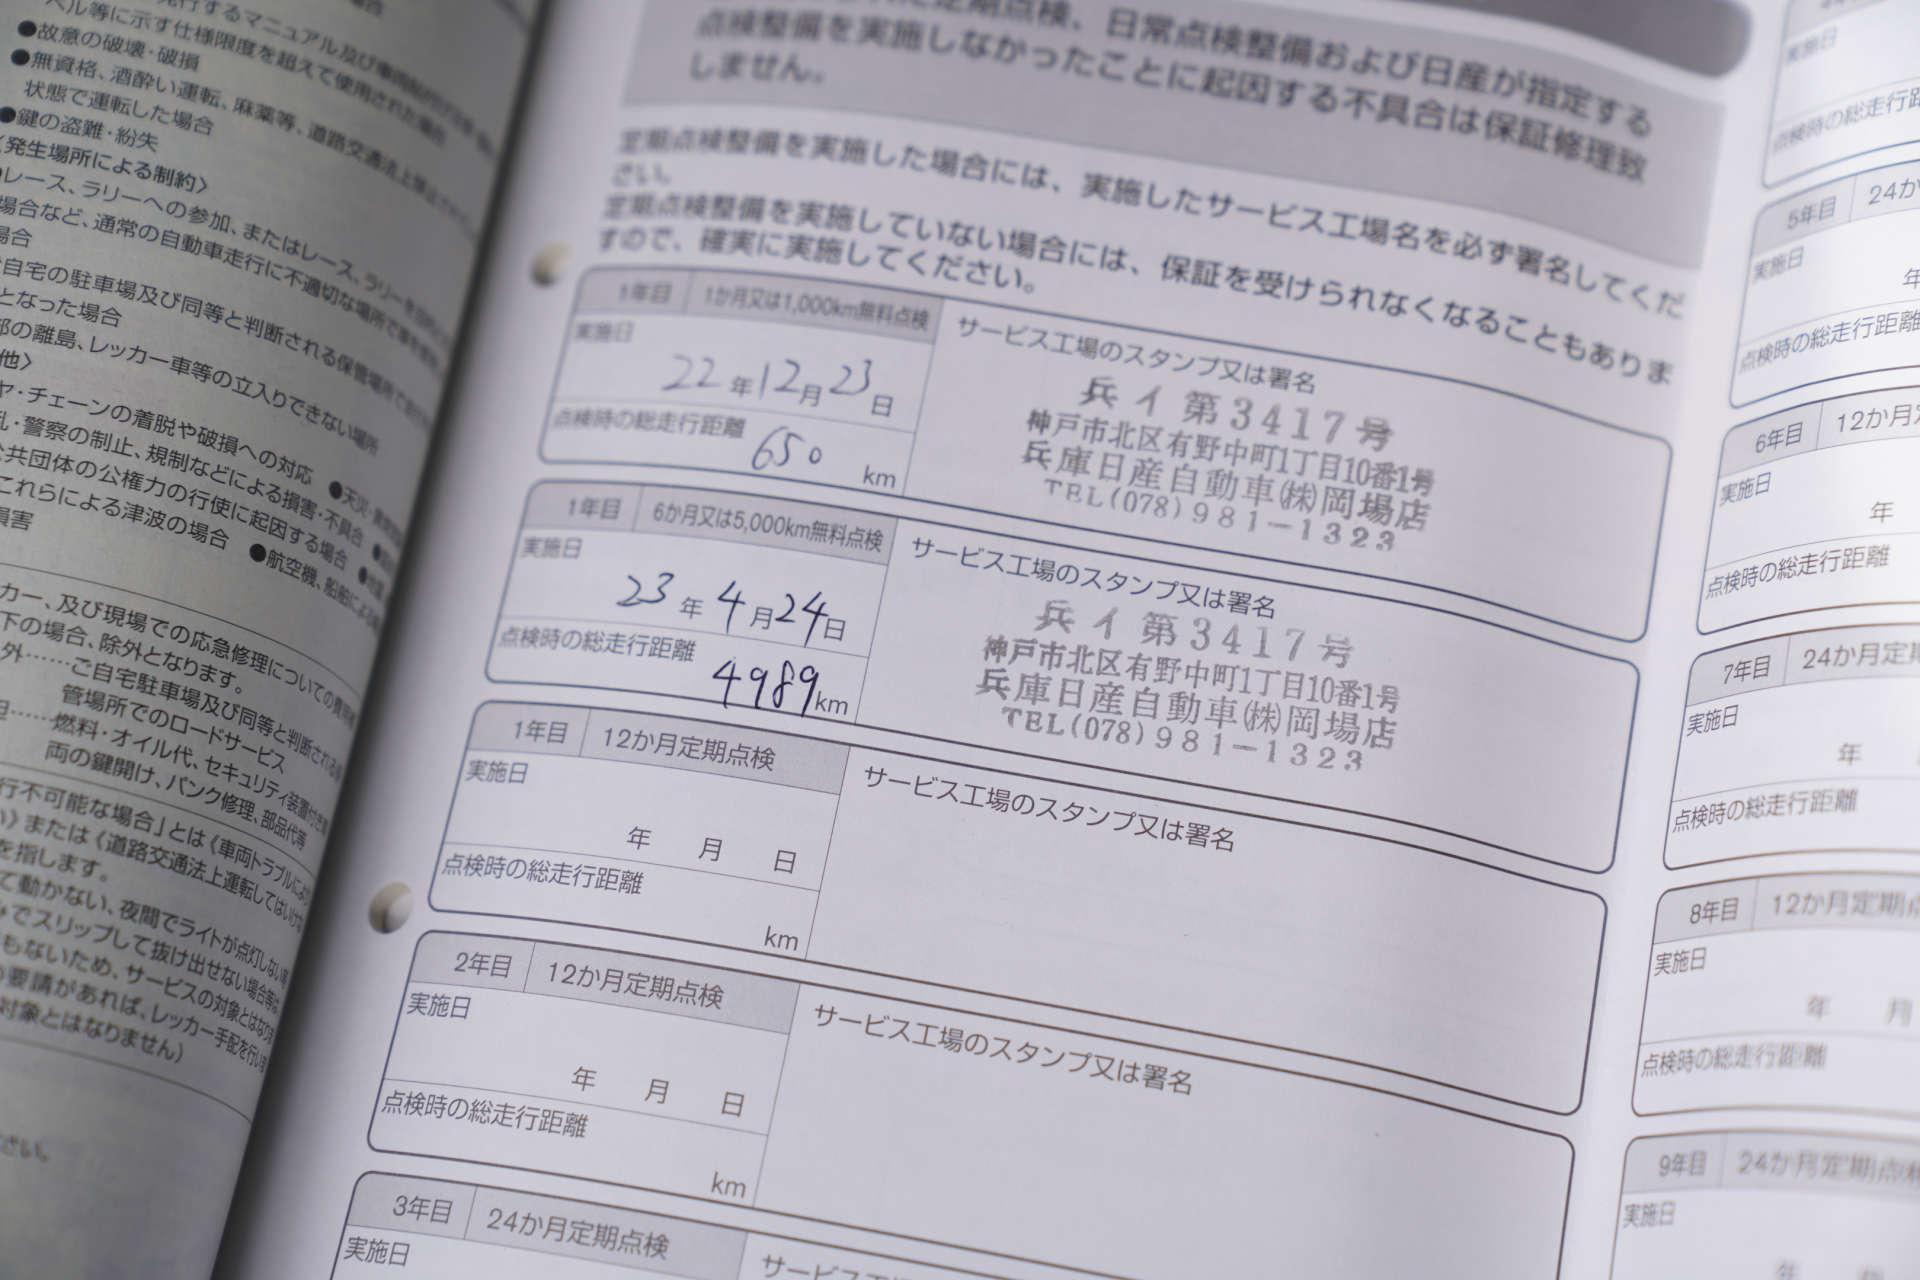 ●故意の破壊・破損
●無資格、酒酔い運転、麻薬等、道路交通法上
状態で運転した場合
●鍵の盗難・紛失
〈発生場所による制約〉
レース、ラリーへの参加、またはレース、ラリーを
場合など、通常の自動車走行に不適切な場所で
場合
自宅の駐車場及び同等と判断される保管場所で
となった場合
の離島、レッカー車等の立入りできない場所
他〉
ヤ・チェーンの着脱や破損への対応
乱・警察の制止、規制などによる損害・不具合
公共団体の公権力の行使に起因する場合
これらによる津波の場合 ●航空機、船舶による
損害
カー、及び現場での応急修理についての費用
下の場合、除外となります。
外……ご自宅駐車場及び同等と判断される
管場所でのロードサービス
……燃料・オイル代、セキュリティ装置付き
両の鍵開け、パンク修理、部品代等
行不可能な場合」とは《車両トラブルにより
》または《道路交通法上運転してはいけ
を指します。
て動かない、夜間でライトが点灯しない
でスリップして抜け出せない場合等は
もないため、サービスの対象とはなりま
要請があれば、レッカー手配を行いま
対象とはなりません）
さい。
定期点検、日常点検整備および日産が指定する
点検整備を実施しなかったことに起因する不具合は保証修理致
しません。
定期点検整備を実施した場合には、実施したサービス工場名を必ず署名してくだ
さい。
定期点検整備を実施していない場合には、保証を受けられなくなることもありま
すので、確実に実施してください。
1年目 1か月又は1,000km無料点検
実施日
22年12月23日
点検時の総走行距離
650 km
サービス工場のスタンプ又は署名
兵イ第3417号
神戸市北区有野中町1丁目10番1号
兵庫日産自動車㈱岡場店
TEL(078)981-1323
1年目 6か月又は5,000km無料点検
実施日
23年4月24日
点検時の総走行距離
4989km
サービス工場のスタンプ又は署名
兵イ第3417号
神戸市北区有野中町1丁目10番1号
兵庫日産自動車㈱岡場店
TEL(078)981-1323
1年目 12か月定期点検
実施日
年 月 日
点検時の総走行距離
km
サービス工場のスタンプ又は署名
2年目 12か月定期点検
実施日
年 月 日
点検時の総走行距離
km
サービス工場のスタンプ又は署名
3年目 24か月定期点検
実施日
実施日
点検時の総走行距
5年目 24か
実施日
年
点検時の総走行距離
6年目 12か月
実施日
年
点検時の総走行距離
7年目 24か月定期
実施日
年
点検時の総走行距離
8年目 12か月定期点
実施日
年 月
点検時の総走行距離
9年目 24か月定期点検
実施日
年 月